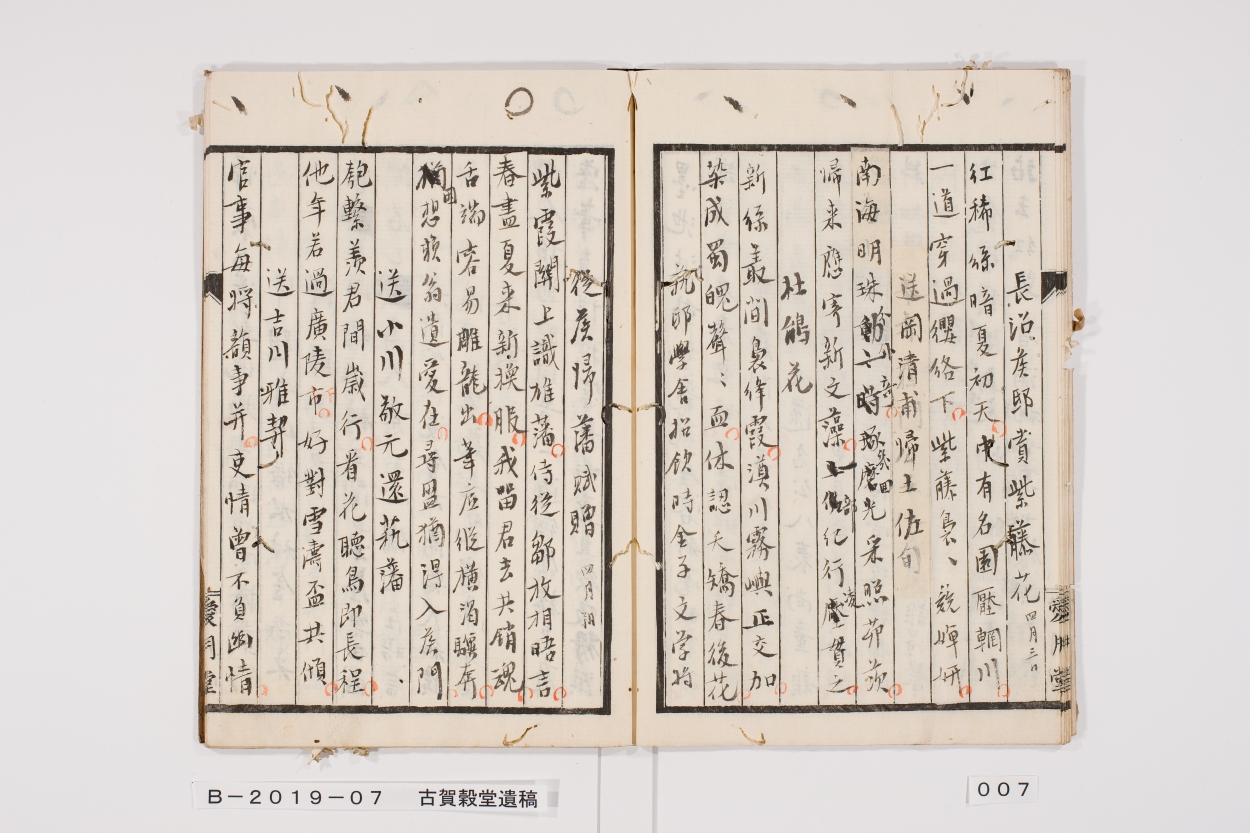 長沿侯邸賞紫藤花 四月三日
紅稀綠暗夏初天 中有名園壓輞川
一道穿過纓絡下 紫藤裊〻競嬋妍
送岡清甫歸土佐
南海明珠分外奇 琢磨光采照茆茨
歸来應寄新文藻 紀行凌壓貫之
杜鵑花
新綠叢間裊絳霞 漢川霧嶼正交加
染成蜀魄聲〻血 休認夭矯春後花
邸學舍招飲時金子文学将
従侯帰藩賦贈 四月
紫霞關上識雄藩 侍從鄒枚相晤言
春盡夏来新換服 我留君去共銷魂
舌端容易雕龍出 筆底縱橫渴驥奔
想萩翁遺愛在 尋盟猶得入侯門
送小川敬元還萩藩
匏繫羨君間歳行 看花聽鳥即長程
他年若過廣陵市 好對雪濤盃共傾
送吉川雅契
官事每将韻事并 吏情曽不負幽情
愛月堂
愛月堂
B-2019-07 古賀穀堂遺稿
007